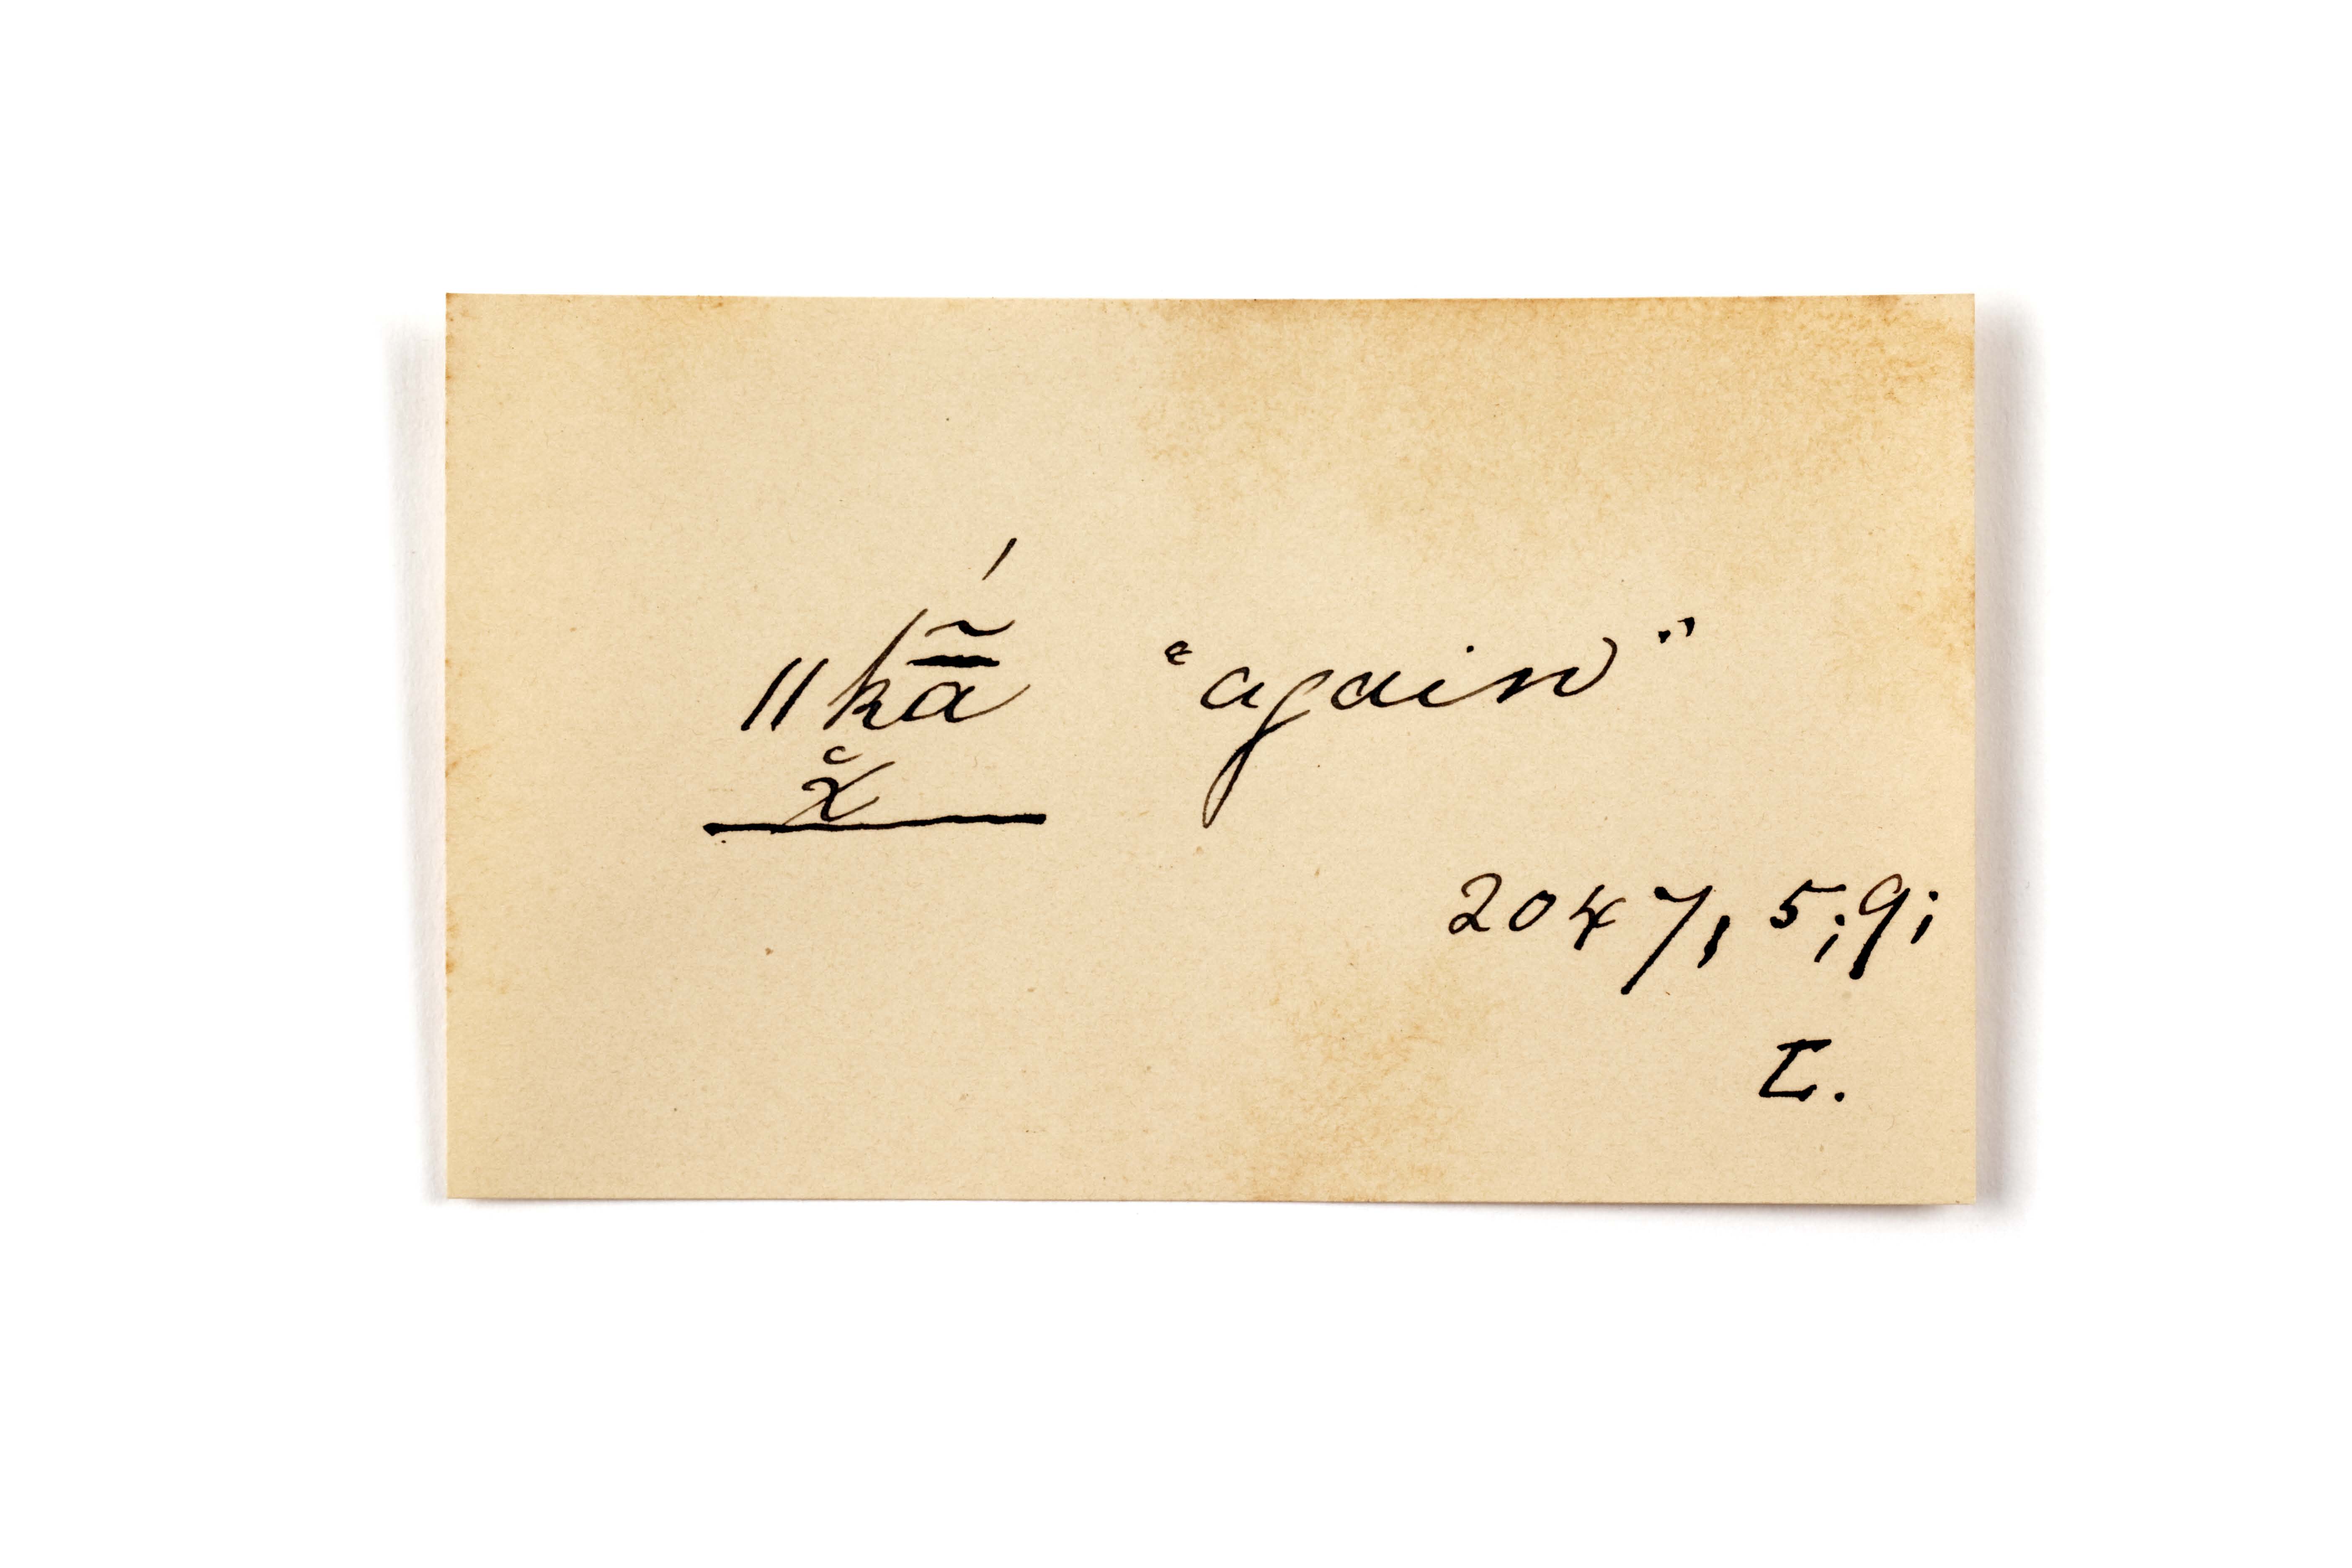 ǁkā̰̃́ "again"
χ̆
2047, 5; 9;
L.